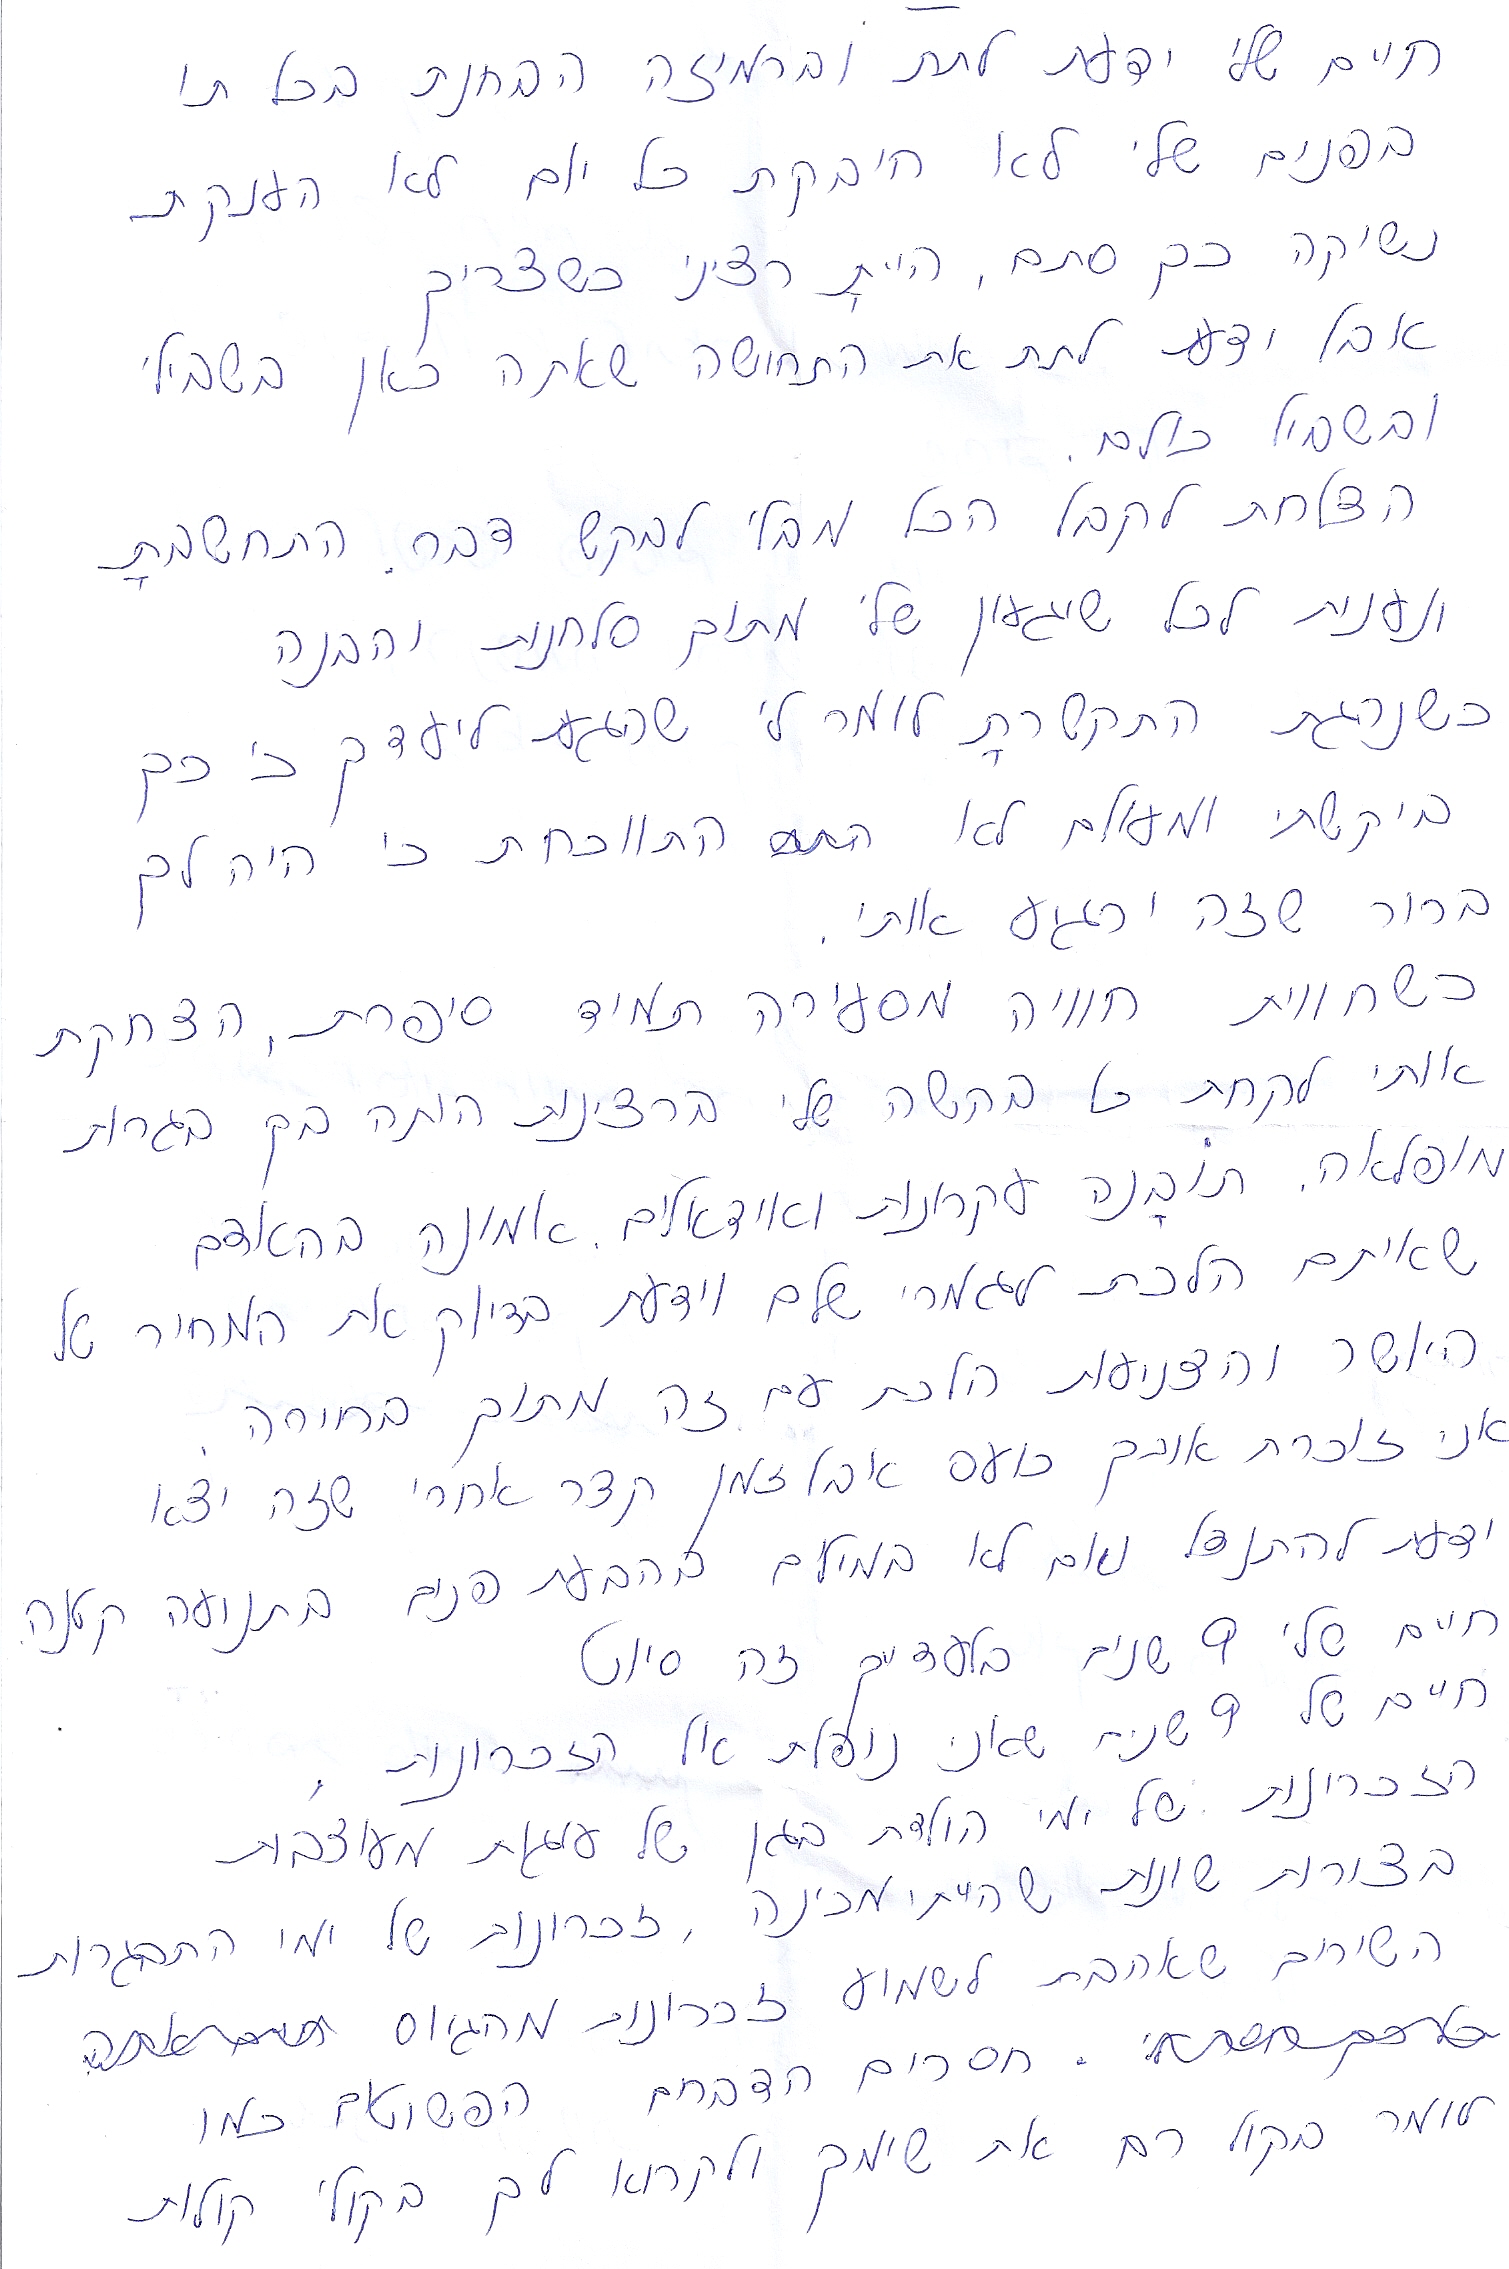 חיים שלי ידעת לתת וברמיזה הבחנת בכל תו
בפנים שלי לא חיבקת כל יום לא הענקת
נשיקה כך סתם, היית רציני כשצריך
אבל ידעת לתת את התחושה שאתה כאן בשבילי
ובשביל כולם.
הצלחת לקבל הכל מבלי לבקש דבר. התחשבתָ
ונענית לכל שיגעון שלי מתוך סלחנות והבנה
כשנהגת התקשרתָ לומר לי שהגעת ליעדך כי כך
ביקשתי ומעולם לא התווכחת כי היה לך
ברור שזה ירגיע אותי.
כשחווית חוויה מסעירה תמיד סיפרת, הצחקת
אותי לקחת כל בקשה שלי ברצינות הותה בך בגרות
מופלאה. תובָנה עקרונות ואידאלים. אמונה בהאדם
שאיתם הלכת לגמרי שלם וידעת בדיוק את המחיר של
היושר והצניעות הלכת עם זה מתוך בחירה.
אני זוכרת אותך כועס אבל זמן קצר אחרי שזה יצא
ידעת להתנצל ואם לא במילים בהבעת פנים בתנועה קטנה.
חיים שלי 9 שנים בלעדיך זה סיוט
חיים של 9 שנים שאני נופלת אל הזכרונות,
הזכרונות של ימי הולדת בגן של עוגות מעוצבות
בצורות שונות שהייתי מכינה, זכרונות של ימי התבגרות
השירים שאהבת לשמוע זכרונות מהגיוס
. חסרים הדברים הפשוטים כמו
לומר בקול רם את שימך ולקרוא לך בקולי קולות